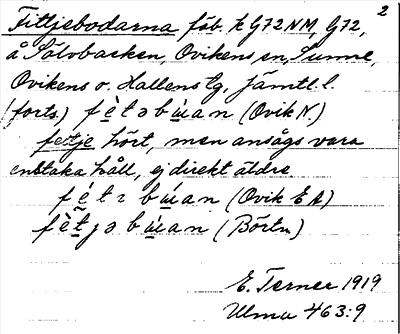 2
Fittjebodarna fäb. k G72 NM, G72,
å Sölvbacken, Ovikens sn, Sunne,
Ovikens o. Hallens tg, Jämtl. l.
(forts.) fètəbẃan (Ovik N.)
fettje hört, men ansågs vara
enstaka håll, ej direkt äldre
fétɪbẃan (Ovik EA)
fètȷəbẃan (Börtn.)
E. Terner 1919
Ulma 463:9